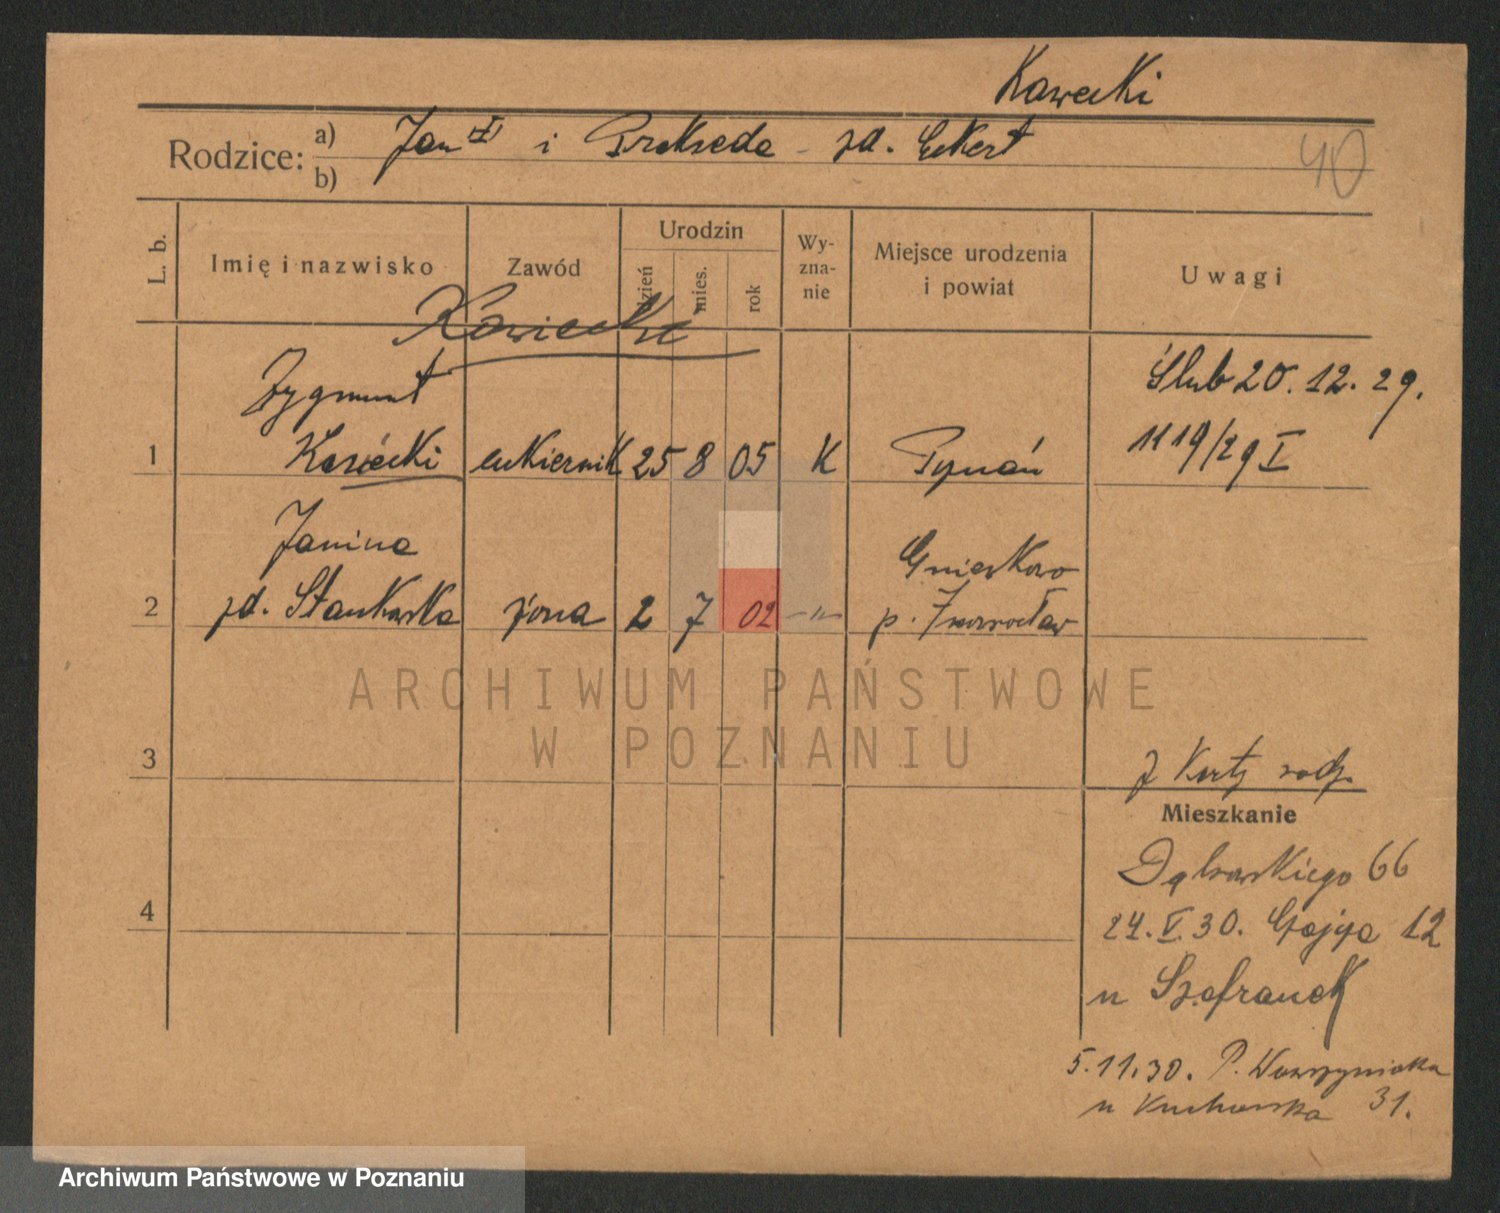 Kawecki
Rodzice: a) Jan I i Prakseda - zd. Eckert
b)
40
L. b.
Imię i nazwisko
Zawód
Urodzin
dzień
mies.
rok
Wy-
zna-
nie
Miejsce urodzenia
i powiat
Uwagi
Kawiecki
Zygmunt
1 cukiernik 25 8 05 K
Ślub 20. 12. 29.
1119/29 I
Janina
2 zd. Stankowska żona 2 7 02 -"-
Gniewkowo
p. Inowrocław
3
z Karty rodz.
Mieszkanie
Dąbrowskiego 66
4
24. V. 30. 12
u Szafranek
5. 11. 30. P. Wawrzyniaka
u Kucharska 31.
ARCHIWUM PAŃSTWOWE
W POZNANIU
Archiwum Państwowe w Poznaniu